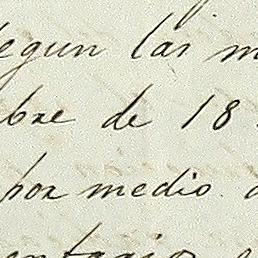 egun las m
bre de 18
por medio